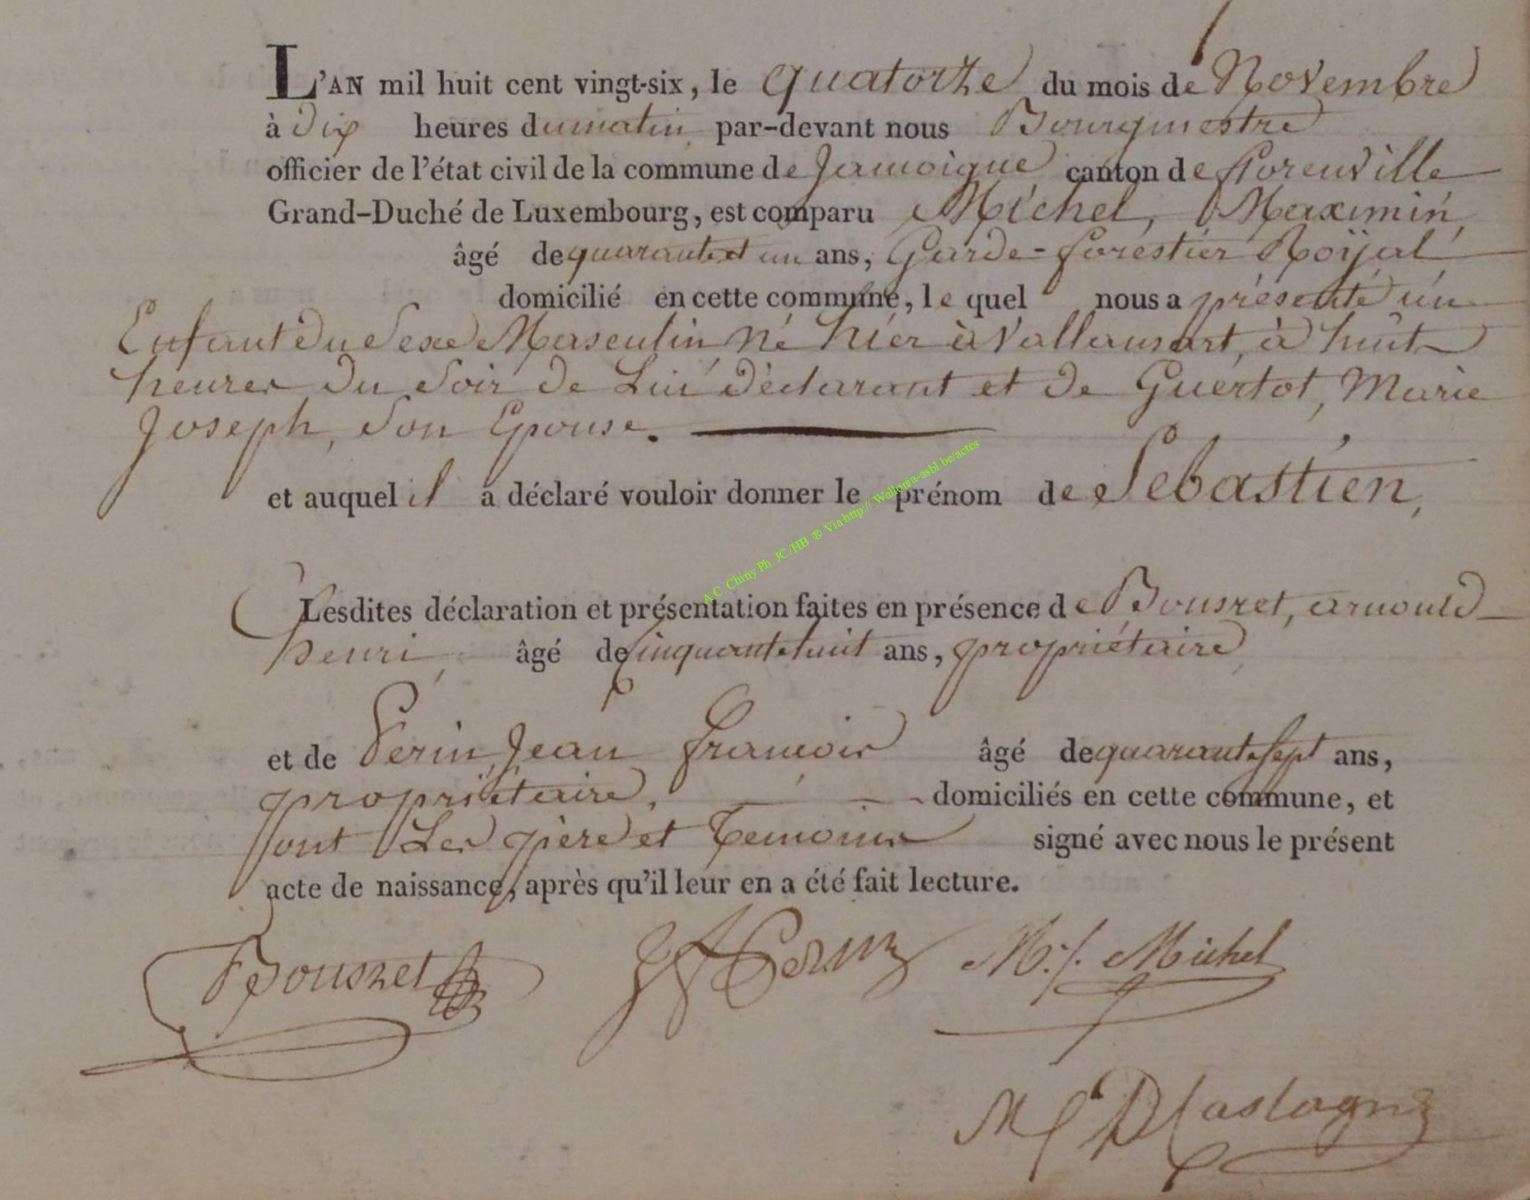 L'AN mil huit cent vingt-six, le quatorze du mois de Novembre
à dix heures du matin, par-devant nous Bourgmestre
officier de l'état civil de la commune de Jamoigne canton de Florenville
Grand-Duché de Luxembourg, est comparu Michel, Maximin,
âgé de quarante et un ans, Garde-forestier Roÿal
domicilié en cette commune, le quel nous a présenté un
Enfant du Sexe Masculin né hier à Vallansart, à huit
heures du Soir de Lui déclarant et de Guertot, Marie
Joseph, Son Epouse.
et auquel il a déclaré vouloir donner le prénom de Sebastien,
Lesdites déclaration et présentation faites en présence de Bousret, arnould
henri, âgé de Cinquante huit ans, propriétaire,
et de Perin, Jean François âgé de quarante Sept ans,
propriétaire, domiciliés en cette commune, et
ont Les père et Temoins signé avec nous le présent
acte de naissance, après qu'il leur en a été fait lecture.
Bousret JF Perin M:f. Michel
A.C. Chiny Ph. JC/HB ® Via http:// Wallonia-asbl.be/actes